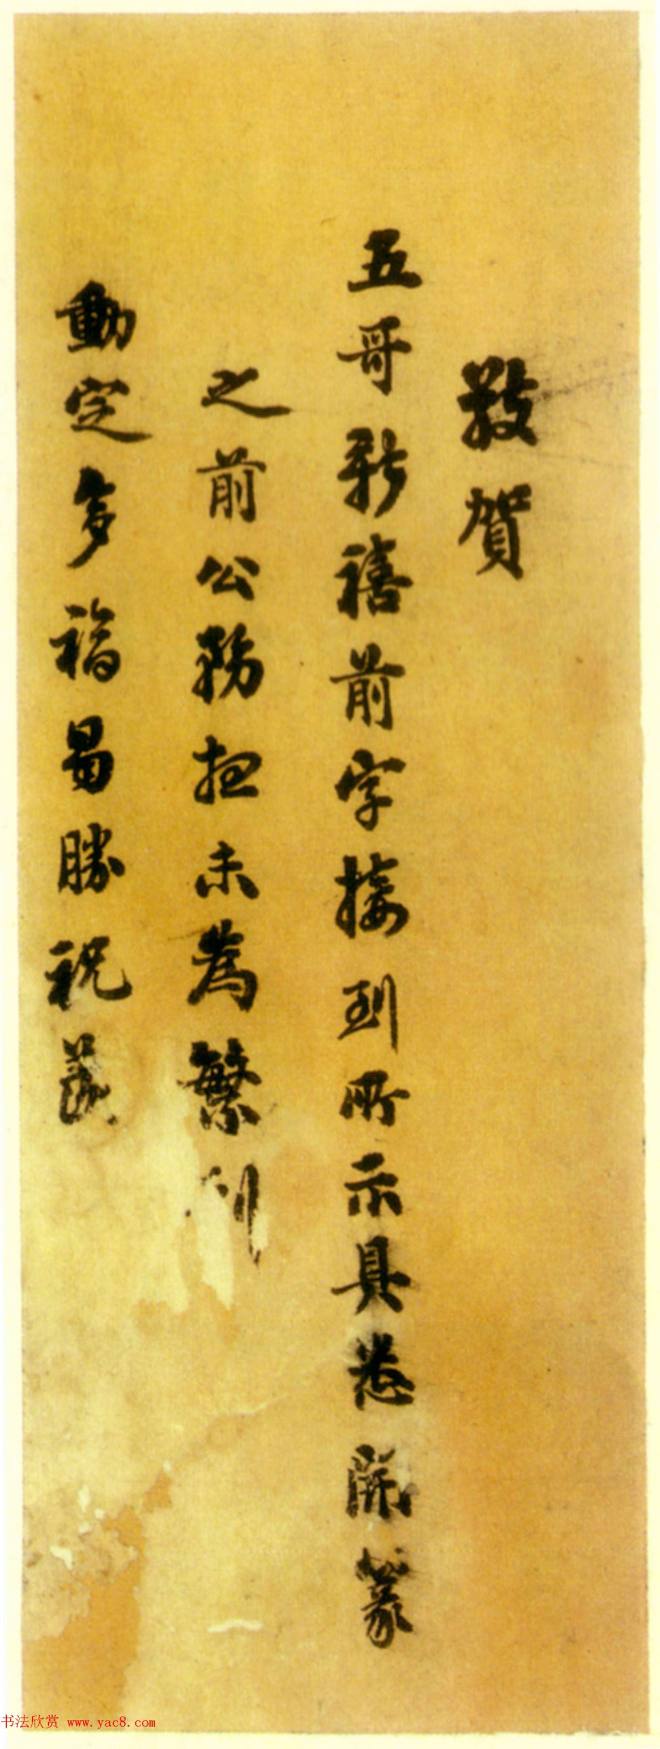 敬賀
五哥新禧前字接到所示具悉開篆
之前公務想未為繁
動定多福曷勝祝
书法欣赏 www.yac8.com